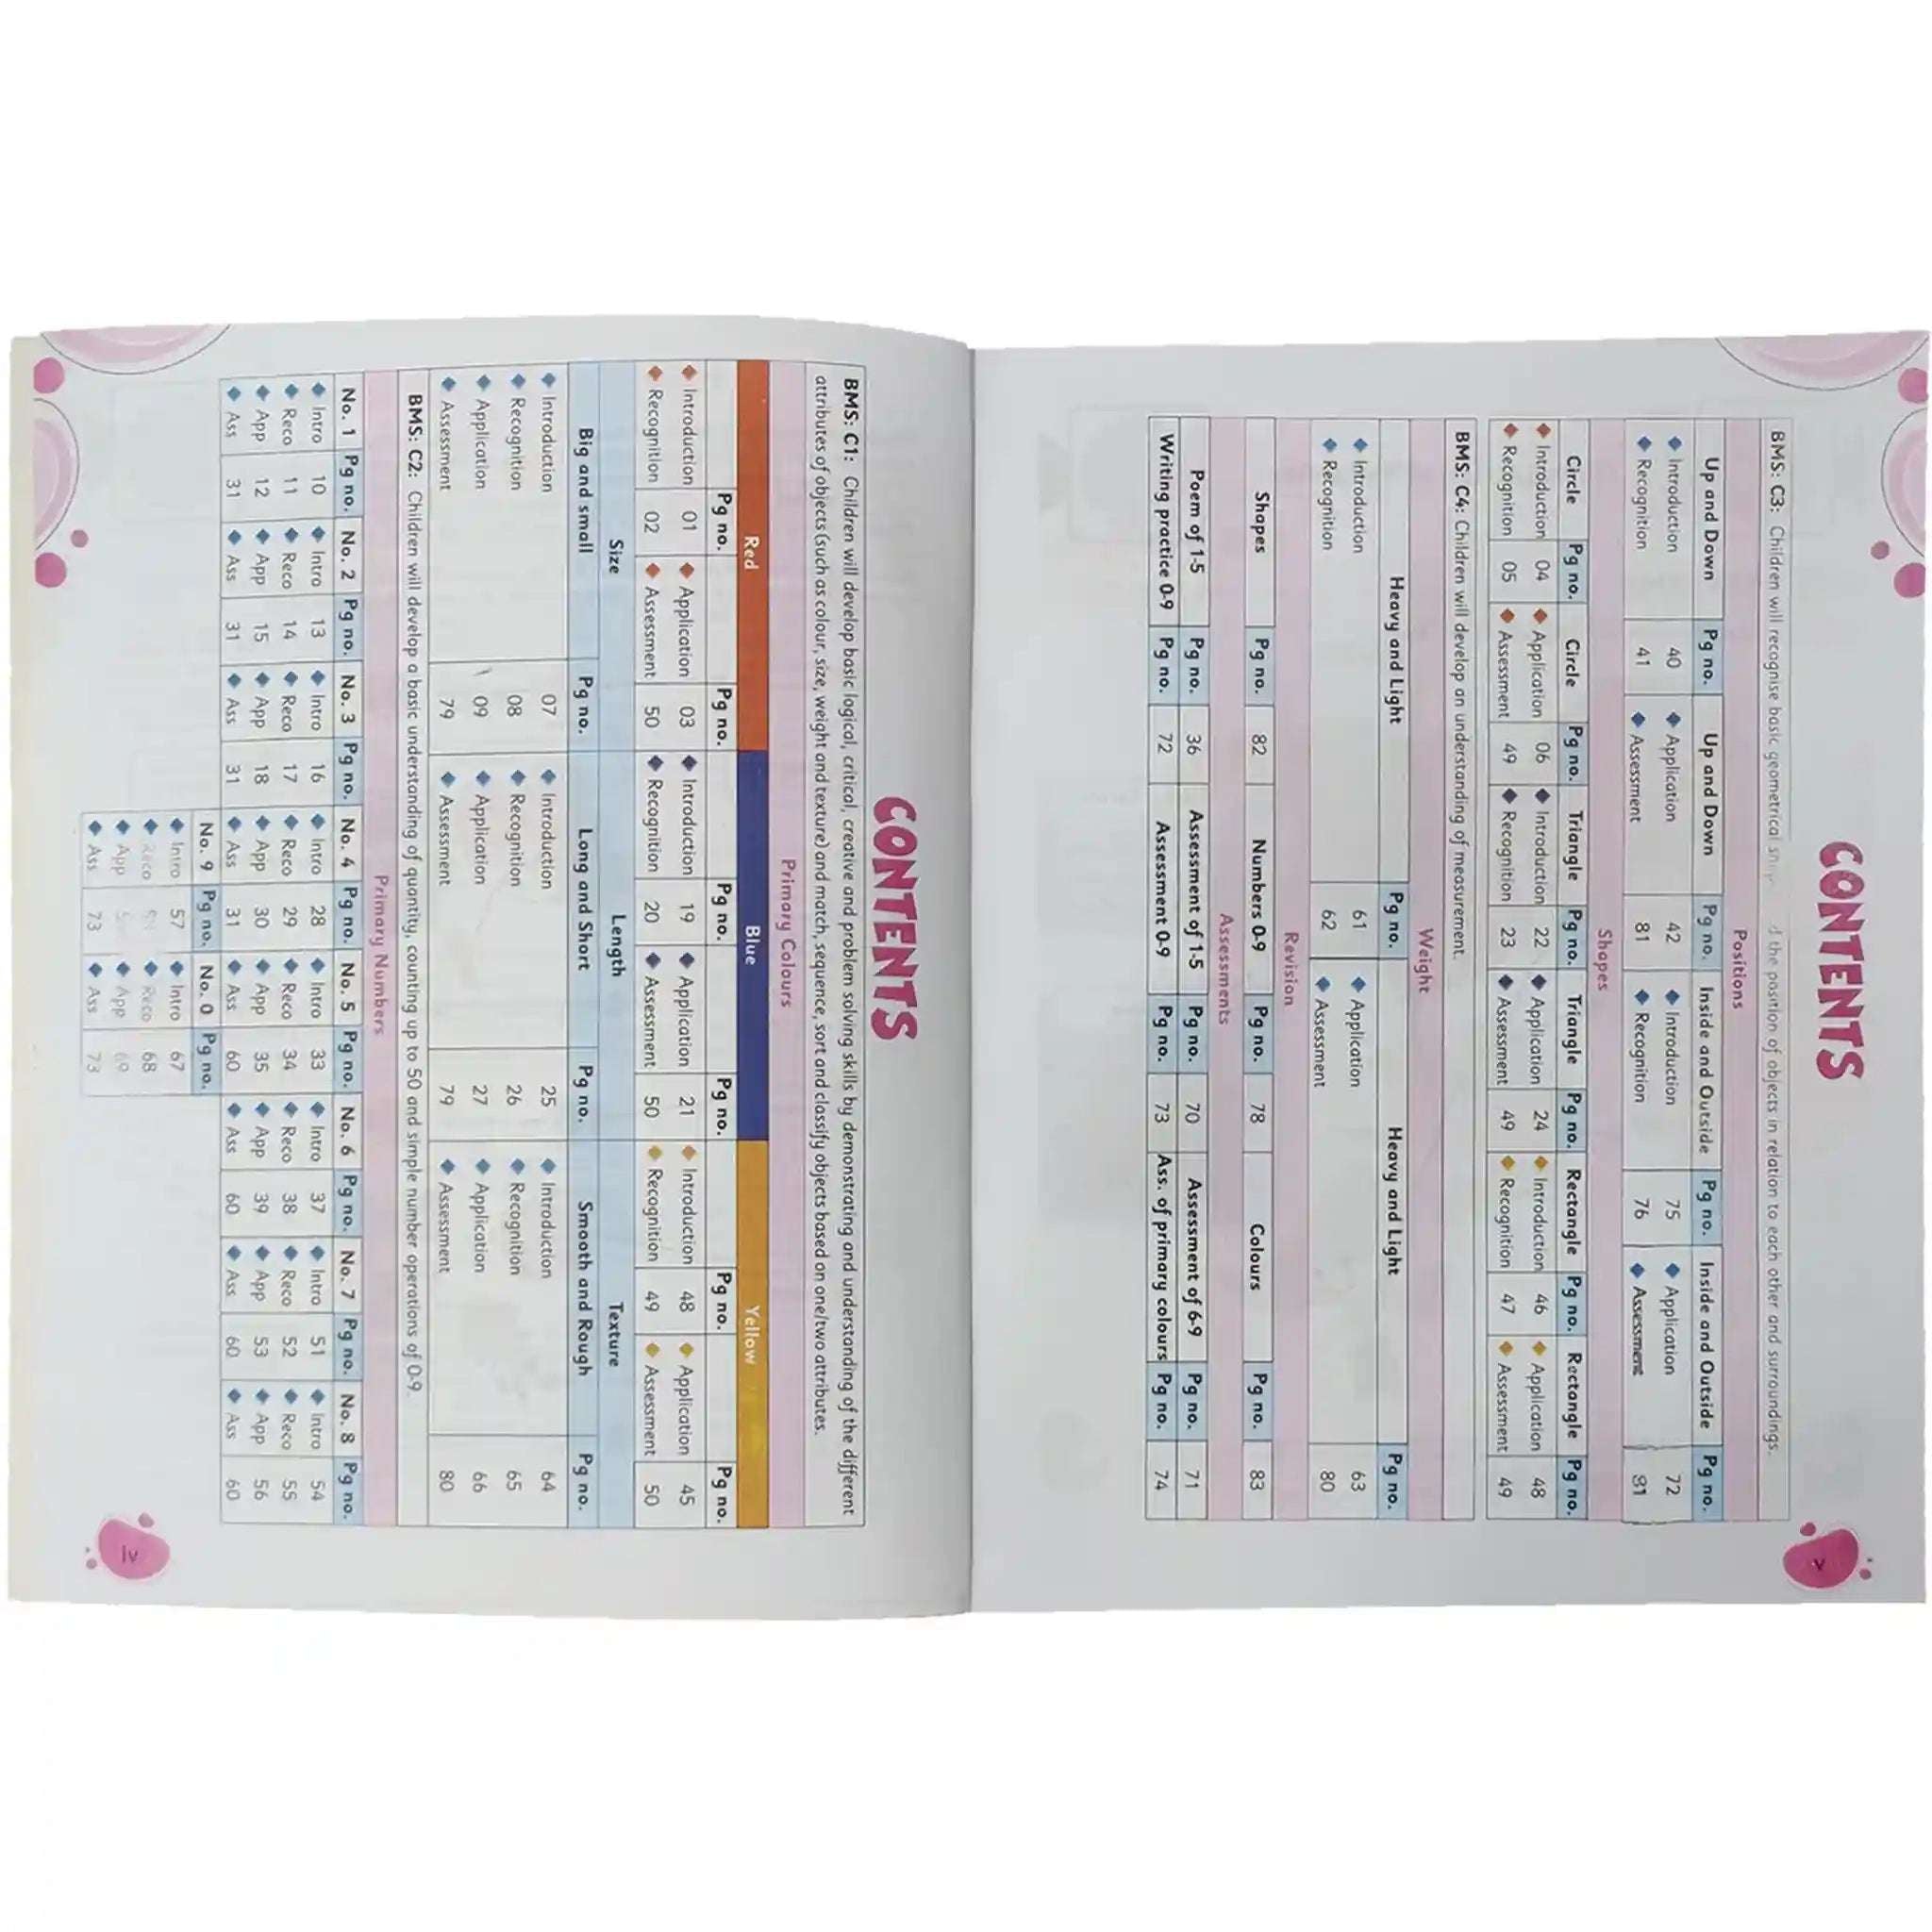 CONTENTS
BMS: C1: Children will develop basic logical, critical, creative and problem solving skills by demonstrating and understanding of the different
attributes of objects (such as colour, size, weight and texture) and match, sequence, sort and classify objects based on one/two attributes.
Primary Colours
Red Blue Yellow
Pg no. Pg no. Pg no. Pg no. Pg no. Pg no.
Introduction 01 Application 03 Introduction 19 Application 21 Introduction 48 Application 45
Recognition 02 Assessment 50 Recognition 20 Assessment 50 Recognition 49 Assessment 50
Size Length Texture
Big and small Pg no. Long and Short Pg no. Smooth and Rough Pg no.
Introduction 07 Introduction 25 Introduction 64
Recognition 08 Recognition 26 Recognition 65
Application 09 Application 27 Application 66
Assessment 79 Assessment 79 Assessment 80
BMS: C2: Children will develop a basic understanding of quantity, counting up to 50 and simple number operations of 0-9.
Primary Numbers
No. 1 Pg no. No. 2 Pg no. No. 3 Pg no. No. 4 Pg no. No. 5 Pg no. No. 6 Pg no. No. 7 Pg no. No. 8 Pg no.
Intro 10 Intro 13 Intro 16 Intro 28 Intro 33 Intro 37 Intro 51 Intro 54
Reco 11 Reco 14 Reco 17 Reco 29 Reco 34 Reco 38 Reco 52 Reco 55
App 12 App 15 App 18 App 30 App 35 App 39 App 53 App 56
Ass 31 Ass 31 Ass 31 Ass 31 Ass 60 Ass 60 Ass 60 Ass 60
No. 9 Pg no. No. 0 Pg no.
Intro 57 Intro 67
Reco Reco 68
App App 69
Ass 73 Ass 73
iv
CONTENTS
BMS: C3: Children will recognise basic geometrical the position of objects in relation to each other and surroundings.
Positions
Up and Down Pg no. Up and Down Pg no. Inside and Outside Pg no. Inside and Outside Pg no.
Introduction 40 Application 42 Introduction 75 Application 72
Recognition 41 Assessment 81 Recognition 76 Assessment 81
Shapes
Circle Pg no. Circle Pg no. Triangle Pg no. Triangle Pg no. Rectangle Pg no. Rectangle Pg no.
Introduction 04 Application 06 Introduction 22 Application 24 Introduction 46 Application 48
Recognition 05 Assessment 49 Recognition 23 Assessment 49 Recognition 47 Assessment 49
BMS: C4: Children will develop an understanding of measurement.
Weight
Heavy and Light Pg no. Heavy and Light Pg no.
Introduction 61 Application 63
Recognition 62 Assessment 80
Revision
Shapes Pg no. 82 Numbers 0-9 Pg no. 78 Colours Pg no. 83
Assessments
Poem of 1-5 Pg no. 36 Assessment of 1-5 Pg no. 70 Assessment of 6-9 Pg no. 71
Writing practice 0-9 Pg no. 72 Assessment 0-9 Pg no. 73 Ass. of primary colours Pg no. 74
v